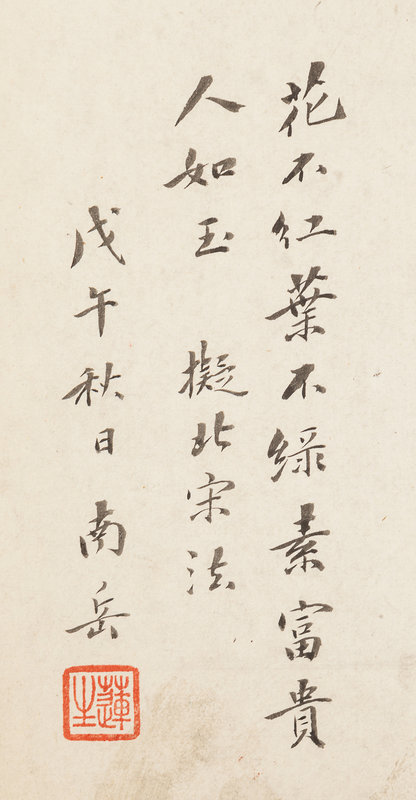 花不紅葉不綠素富貴
人如玉 擬北宋法
戊午秋日南岳
蓮生